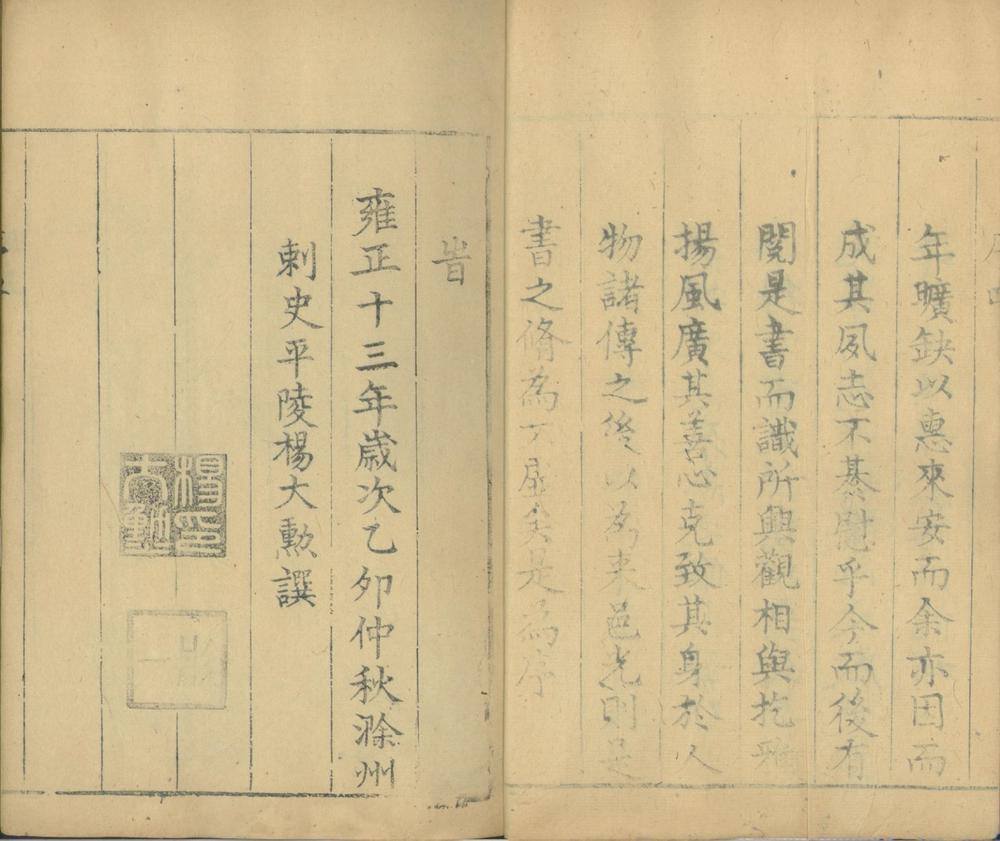 年曠缺以惠來安而余亦因而
成其夙志不綦慰乎今而後有
閱是書而識所興觀相與扢雅
揚風廣其善心克致其身於人
物諸傳之後以為来邑光則是
書之脩為不虛矣是為序
旹
雍正十三年歲次乙夘仲秋滁州
刺史平陵楊大勲譔
楊印大勲